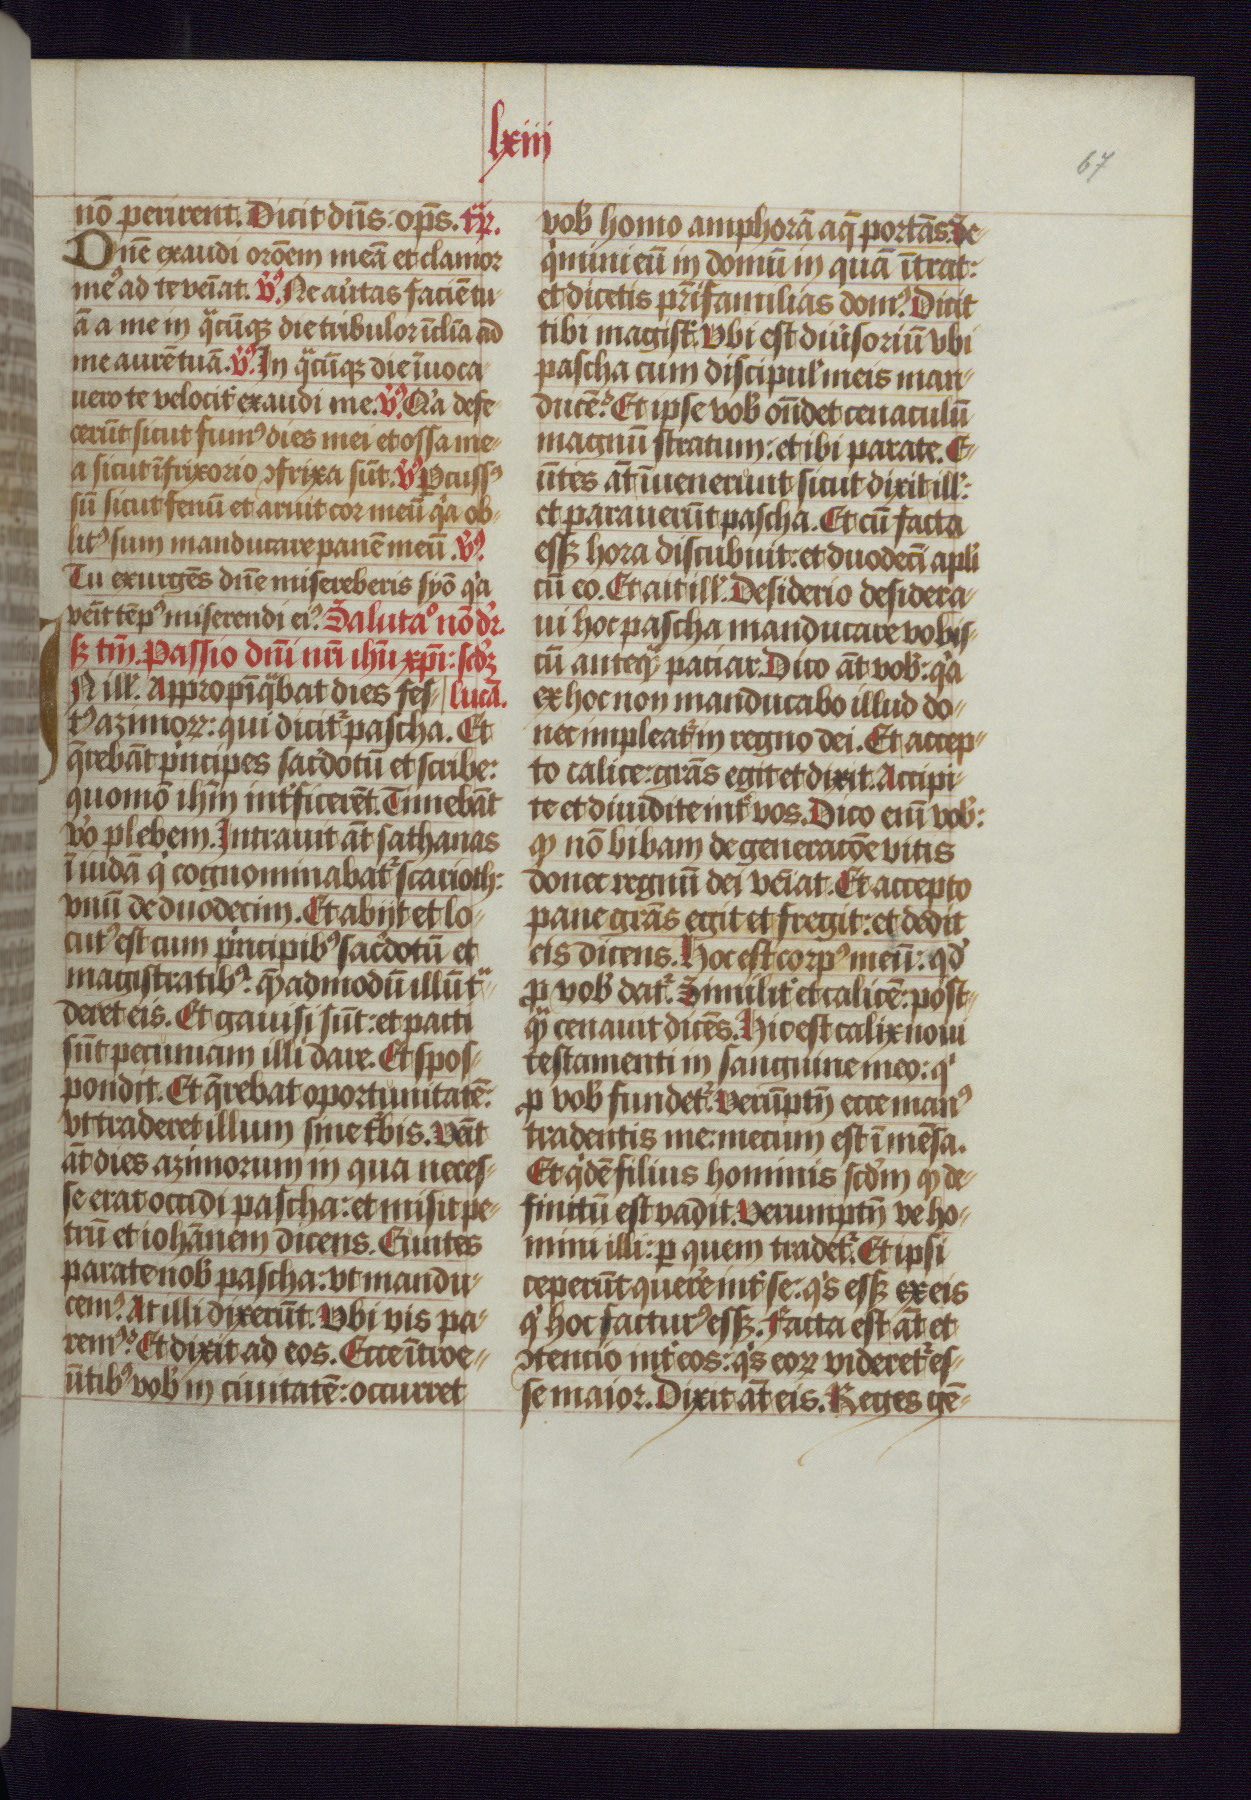 lxiii
67
nō perirent. Dicit dn̄s. op̄s. tr̄.
Dn̄e exaudi orōem meā et clamor
meꝰ ad te veīat. v̓ꝰ. Ne au̓tas faciē tu-
ā a me in q̄cūqꝫ die tribulor īclīa ad
me aurē tuā. v̓ꝰ. In q̄cūqꝫ die īuoca-
uero te velocit̓ exaudi me. v̓ꝰ. Q̓a defe-
cerūt sicut fumꝰ dies mei et ossa me-
a sicut ī frixorio ꝯfrixa sūt. v̓ꝰ. Ꝑcussꝰ
sū sicut fenū et aruit cor meū q̓a ob-
litꝰ sum manducare panē meū. v̓ꝰ.
Tu exurgēs dn̄e misereberis syō q̓a
venīt tēpꝰ miserendi eiꝰ. Salutaᵒ nō dr̄.
sꝫ tm̄. Passio dn̄i nr̄i ih̄u xp̄i: scd̓ꝫ
N ill̓. Appropīq̄bat dies fes- lucā.
tꝰ azimoꝝ: qui dicit᷑ pascha. Et
q̄rebāt p̓ncipes sac̓dotū et scribe:
quomō ih̄m int̓ficerēt. Timebāt
v̓o plebem. Intrauit āt sathanas
ī iudā q̓ cognominabat᷑ scarioth:
vnū de duodecim. Et abijt et lo-
cutꝰ est cum p̓ncipibꝰ sac̓dotū et
magistratibꝰ. quē admodū illū t̄-
deret eis. Et gauisi sūt: et pacti
sūt pecuniam illi dare. Et spos-
pondit. Et q̄rebat oportunitatē:
vt traderet illum sine t̓bis. Venīt
āt dies azimorum in qua neces-
se erat occidi pascha: et misit pe-
trū et iohānem dicens. Eūntes
parate nob̓ pascha: vt mandu-
cemꝰ. At illi dixerūt. Vbi vis pa-
remꝰ? Et dixit ad eos. Ecce ītroe-
ūtibꝰ vob̓ in ciuitatē: occurret
vob̓ homo amphorā aq̄ portās. Se-
q̓mini eū in domū in quā ītrat:
et dicetis pr̄ifamilias domꝰ. Dicit
tibi magist̓. Vbi est diu̓soriū vbi
pascha cum discipul̓ meis man-
ducē? Et ipse vob̓ on̄det cenaculū
magnū stratum: et ibi parate. E-
ūtes āt īuenerunt sicut dixit ill̓:
et parauerūt pascha. Et cū facta
essꝫ hora discubuit: et duodecī apl̓i
cū eo. Et ait ill̓. Desiderio desidera-
ui hoc pascha manducare vobis-
cū anteq̄ȝ patiar. Dico āt vob̓: q̓a
ex hoc non manducabo illud do-
nec impleat᷑ in regno dei. Et accep-
to calice: grās egit et dixit. Accipi-
te et diuidite int̓ vos. Dico enī vob̓:
ꝙ nō bibam de generatōe vitis
donec regnū dei veīat. Et accepto
pane grās egit et fregit: et dedit
eis dicens. Hoc est corpꝰ meū: qd̓
ꝓ vob̓ dat᷑. Similit̓ et calicē: post-
q̄ȝ cenauit dicēs. Hic est calix noui
testamenti in sanguine meo: q̓
ꝓ vob̓ fundet᷑. Verūptn̄ ecce manꝰ
tradentis me: mecum est ī mēsa.
Et q̓dē filius hominis scd̓m ꝙ de-
finitū est vadit. Verumptn̄ ve ho-
mini illi: ꝑ quem tradet᷑. Et ipsi
ceperūt querere int̓ se: q̓s essꝫ ex eis
q̓ hoc facturꝰ essꝫ. Facta est āt et
ꝯtencio int̓ eos: q̓s eoꝝ videret᷑ es-
se maior. Dixit āt eis. Reges gē-